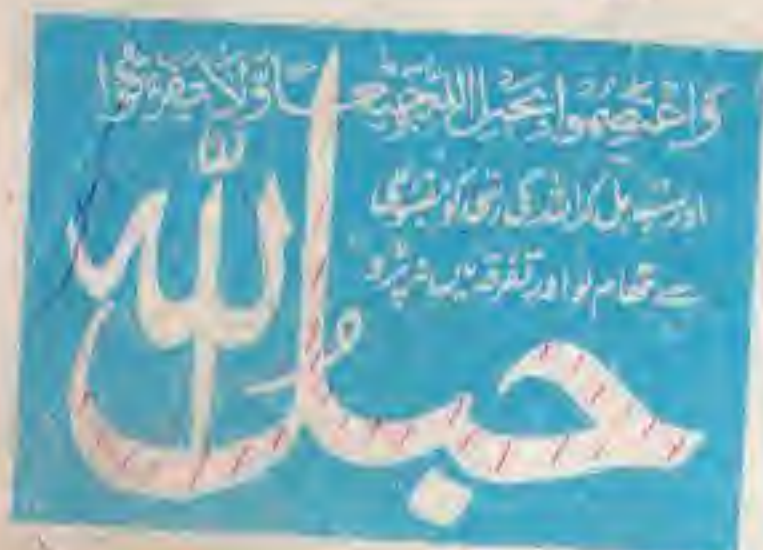 وَاعْتَصِمُوا بِحَبْلِ اللهِ جَمِيْعًا وَّلَا تَفَرَّقُوْا
اور سب مل کر اللہ کی رسی کو مضبوطی
سے تھام لو اور تفرقہ میں نہ پڑو
حبل اللہ